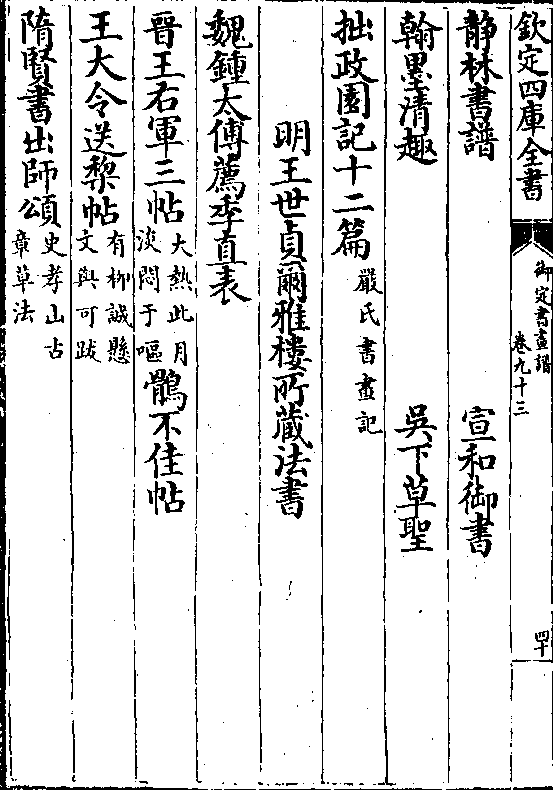 欽定四庫全書
御定書畫譜
卷九十三
四十
静林書譜　宣和御書
翰墨清趣　吳下草聖
拙政園記十二篇嚴氏書畫記
明王世貞爾雅樓所藏法書
魏鍾太傅薦季直表
晉王右軍三帖大熱此月淡悶于嘔鶻不佳帖
王大令送棃帖有柳誠懸文與可跋
隋賢書出師頌史孝山古章草法